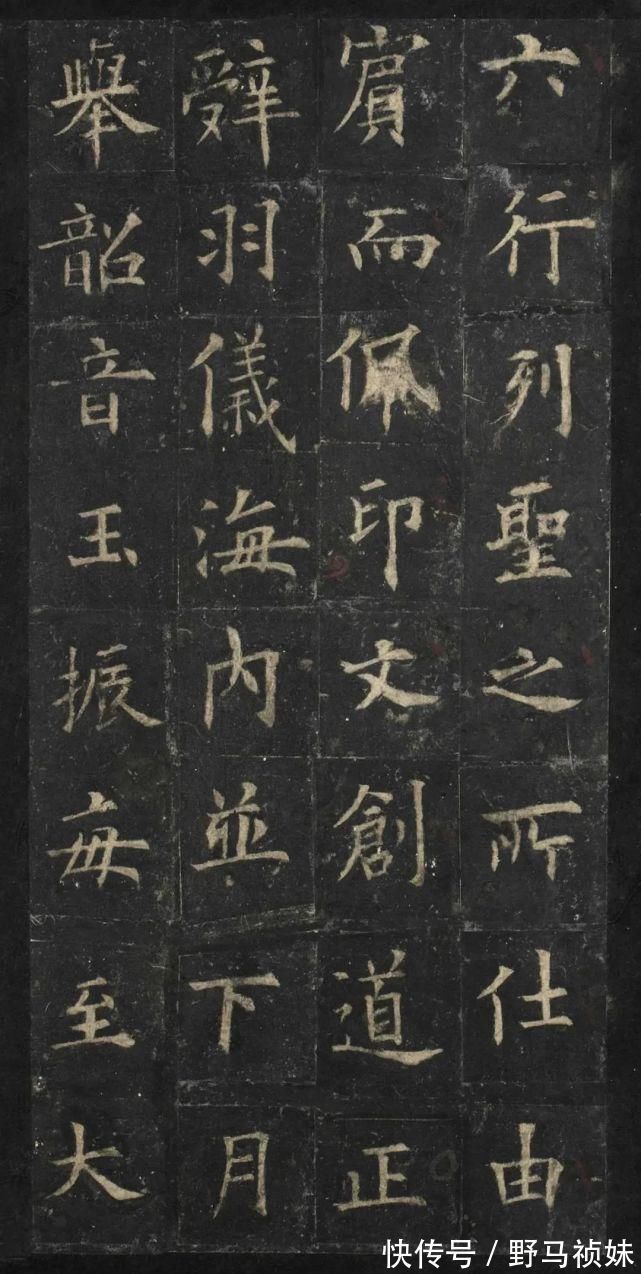 六行列聖之所仕由
賔而佩印文創道正
辤羽儀海内並下月
舉韶音玉振每至大
快传号 / 野马祯妹